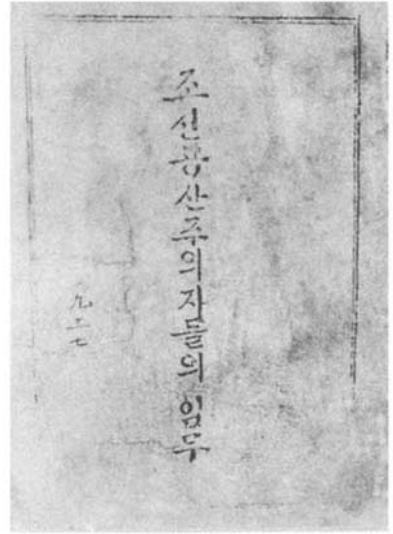 조선공산주의자들의임무
九二七